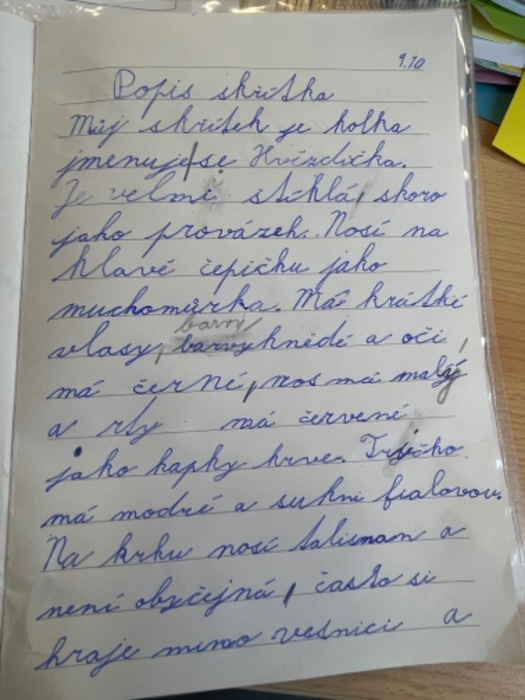 9.10
Popis skřítka
Můj skřítek je holka
jmenuje se Hvězdička.
Je velmi štíhlá, skoro
jako provázek. Nosí na
hlavě čepičku jako
muchomůrka. Má krátké
barvy
vlasy, barvy hnědé a oči,
má černé, nos má malý
a rty má červené
jako kapky krve. Tričko
má modré a sukni fialovou.
Na krku nosí talisman a
není obyčejná, často si
hraje mimo vesnici a